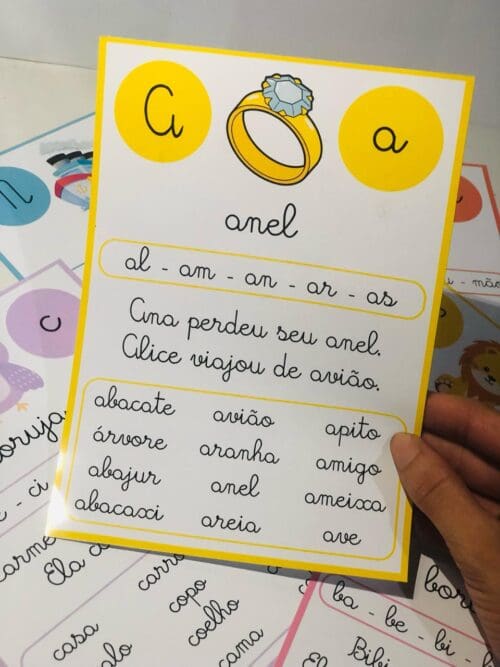 A a
anel
al - am - an - ar - as
Ana perdeu seu anel.
Alice viajou de avião.
abacate avião apito
árvore aranha amigo
abajur anel ameixa
abacaxi areia ave
n
c
oruja
- ci
carme
Ela
casa
carr
copo
coelho
cama
- mão
ba - be - bi - b
Bibi
El